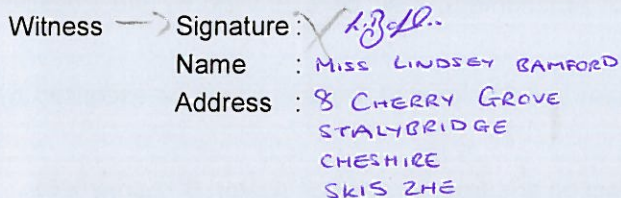 Witness Signature :
Name : MISS LINDSEY BAMFORD
Address : 8 CHERRY GROVE
STALYBRIDGE
CHESHIRE
SK15 2HE